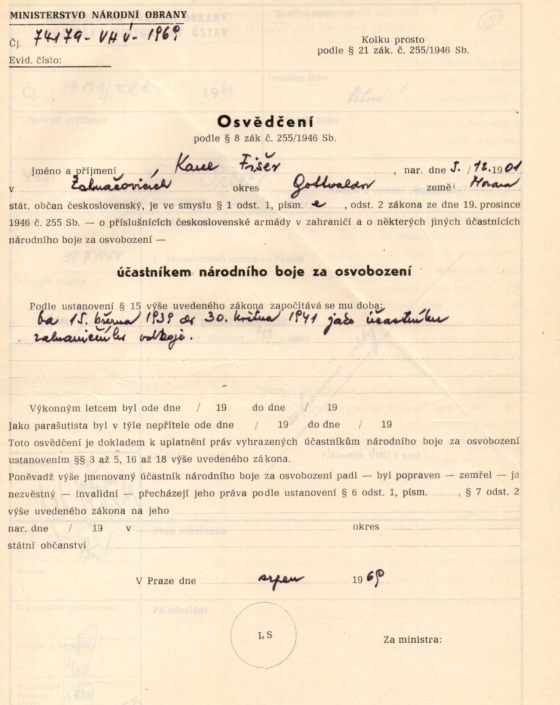 MINISTERSTVO NÁRODNÍ OBRANY
Čj. 74179-VHÚ-1969
Evid. číslo:
Kolku prosto
podle § 21 zák. č. 255/1946 Sb.
Osvědčení
podle § 8 zák č. 255/1946 Sb.
Jméno a příjmení Karel Fišer, nar. dne 5./12.1901
v okres Gottwaldov země: Morava
stát. občan československý, je ve smyslu § 1 odst. 1, písm. e, odst. 2 zákona ze dne 19. prosince
1946 č. 255 Sb. — o příslušnících československé armády v zahraničí a o některých jiných účastnících
národního boje za osvobození —
účastníkem národního boje za osvobození
Podle ustanovení § 15 výše uvedeného zákona započítává se mu doba:
Od 15. března 1939 do 30. května 1941 jako účastníku
zahraničního odboje.
Výkonným letcem byl ode dne / 19 do dne / 19
Jako parašutista byl v týle nepřítele ode dne / 19 do dne / 19
Toto osvědčení je dokladem k uplatnění práv vyhrazených účastníkům národního boje za osvobození
ustanovením §§ 3 až 5, 16 až 18 výše uvedeného zákona.
Poněvadž výše jmenovaný účastník národního boje za osvobození padl — byl popraven — zemřel — je
nezvěstný — invalidní — přecházejí jeho práva podle ustanovení § 6 odst. 1, písm. ......, § 7 odst. 2
výše uvedeného zákona na jeho
nar. dne / 19 v okres
státní občanství
V Praze dne srpen 1969
LS
Za ministra: